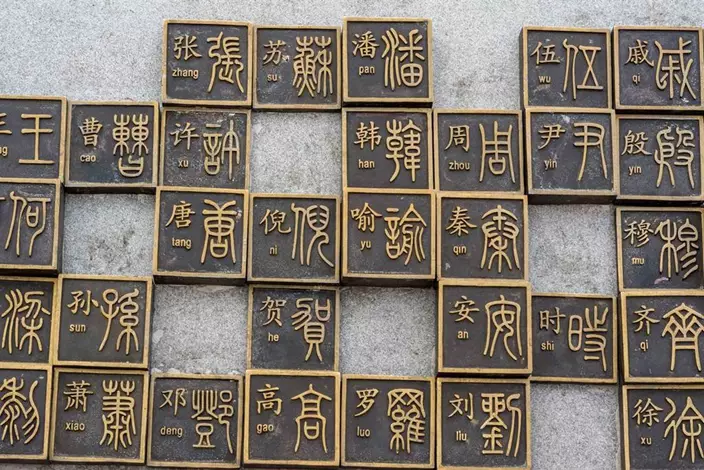 张 張
zhang
苏 蘇
su
潘 潘
pan
伍 伍
wu
戚 戚
qi
王
曹 曹
cao
许 許
xu
韩 韓
han
周 周
zhou
尹 尹
yin
殷 殷
yin
何
唐 唐
tang
倪 倪
ni
喻 喻
yu
秦 秦
qin
穆 穆
mu
梁
孙 孫
sun
贺 賀
he
安 安
an
时 時
shi
齐 齊
qi
萧 蕭
xiao
邓 鄧
deng
高 高
gao
罗 羅
luo
刘 劉
liu
徐 徐
xu